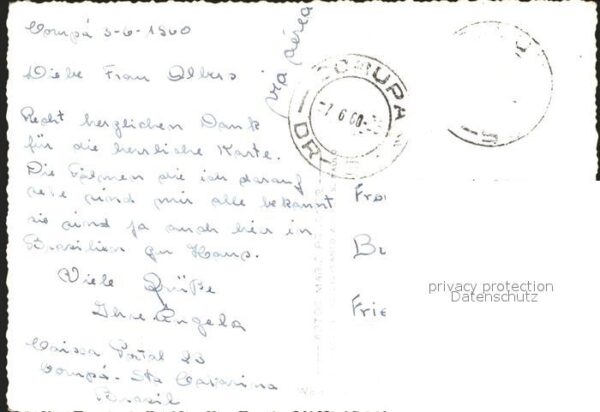 Corupá 3-6-1960
via aérea
Liebe Frau Albers
Recht herzlichen Dank
für die herrliche Karte.
Die Palmen die ich darauf
sehe sind mir alle bekannt
sie sind ja auch hier in
Brasilien zu Haus.
Viele Grüße
Ihre Angela
Caixa Postal 23
Corupá - Sta Catarina
Brasil
CORUPA
-7 6 60
DR-
Fra
Br
Frie
privacy protection
Datenschutz